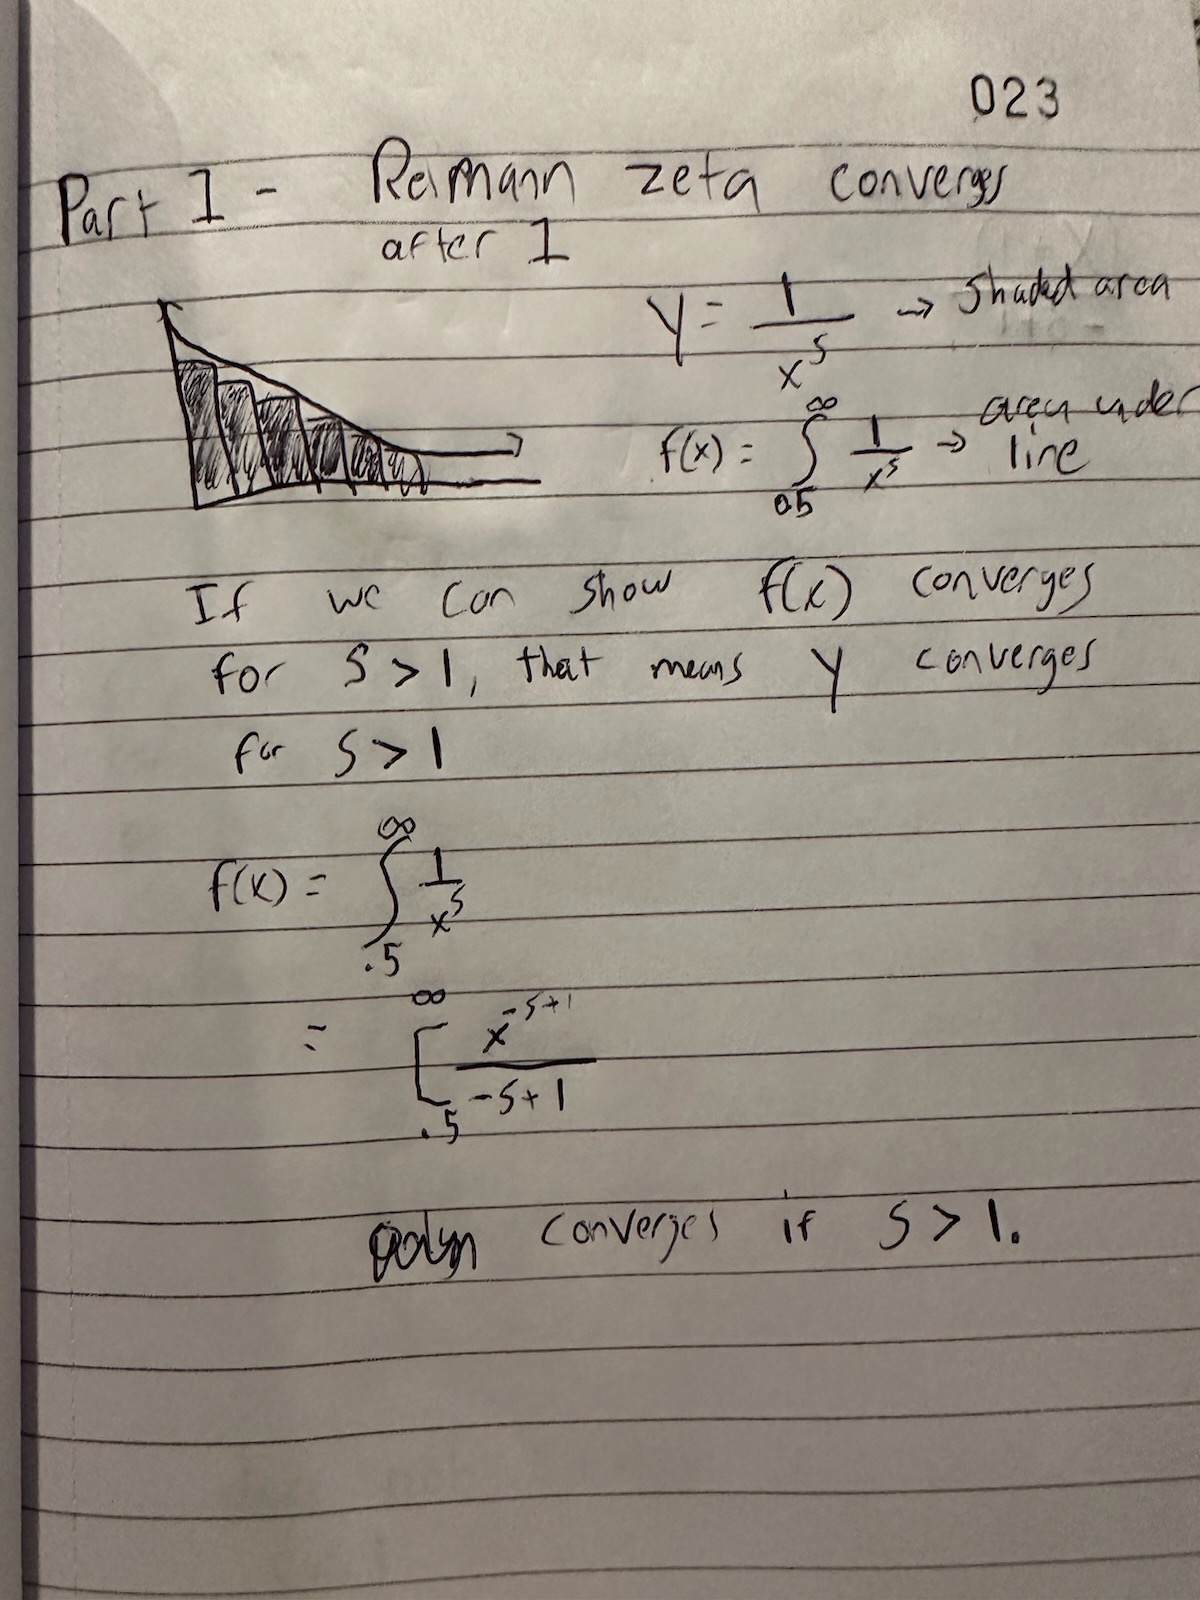 023
Part I - Reimann zeta converges
after 1
y = 1/x^s → shaded area
f(x) = ∫_{0.5}^{∞} 1/x^s → area under
line
If we can show f(x) converges
for S > 1, that means y converges
for S > 1
f(x) = ∫_{.5}^{∞} 1/x^s
= [_{.5}^{∞} x^{-s+1}/-s+1
converges if S > 1.